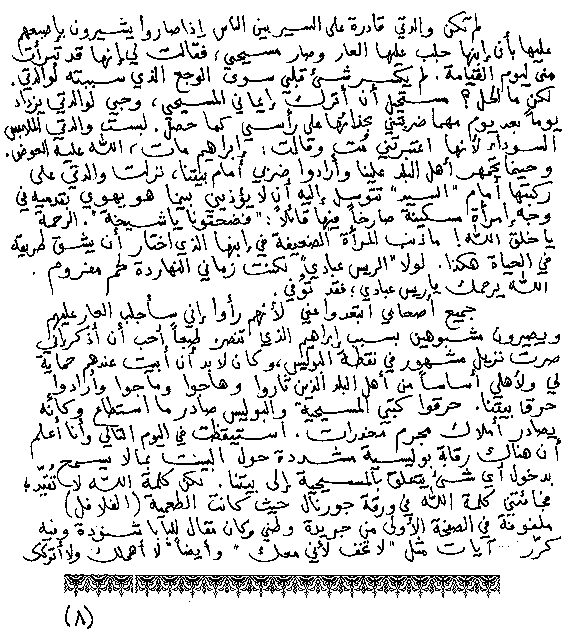 لم تكن والدتي قادرة على السير بين الناس إذا صاروا يشيرون بإصبعهم
عليها بأن إبنها جلب عليها العار وصار مسيحي، فقالت لي إنها قد تبرأت
مني ليوم القيامة. لم يكسر شئ قلبي سوى الوجع الذي سببته لوالدتي.
لكن ما الحل؟ مستحيل أن أترك إيماني المسيحي، وحبي لوالدتي يزداد
يوماً بعد يوم مهما ضربتني بحذائها على رأسي كما حصل. لبست والدتي الملابس
السوداء لأنها اعتبرتني مُت وقالت: "إبراهيم مات، الله عليه العوض.
وحينما تجمهر أهل البلد علينا وأرادوا ضربي أمام بيتنا، نزلت والدتي على
ركبتها أمام "السيد" تتوسل إليه أن لا يؤذيني بينما هو يهوي بقدميه في
وجه إمرأة مسكينة صارخاً فيها قائلاً: "فضحتونا يا شيخة". الرحمة
يا خلق الله! ما ذنب المرأة الضعيفة في إبنها الذي اختار أن يشق طريقه
في الحياة هكذا. لولا "الريس عبادي" لكنت زماني النهاردة لحم مفروم.
الله يرحمك يا ريس عبادي، فقد توفى
جميع أصحابي ابتعدوا عني لأنهم رأوا إني سأجلب العار عليهم
ويصيرون مشبوهين بسبب إبراهيم الذي تنصر. طبعاً أحب أن أذكر أني
صرت نزيل مشهور في نقطة البوليس، وكان لابد أن أبيت عندهم حماية
لي ولأهلي أساساً من أهل البلد الذين ثاروا وهاجوا وماجوا وأرادوا
حرق بيتنا. حرقوا كتبي المسيحية والبوليس صادر ما استطاع وكأنه
يصادر أملاك مجرم مخدرات. استيقظت في اليوم التالي وأنا أعلم
أن هناك رقابة بوليسية مشددة حول البيت بما لا يسمح
بدخول أي شئ يتعلق بالمسيحية إلى بيتنا. لكن كلمة الله لا تُقيَّد؛
فجائتني كلمة الله في ورقة جورنال حيث كانت الطعمية (الفلافل)
ملفوفة في الصفحة الأولى من جريدة وطني وكان مقال للبابا شنودة وفيه
كرّر ... آيات مثل "لا تخف لأني معك" وأيضاً "لا أهملك ولا أتركك
(٨)